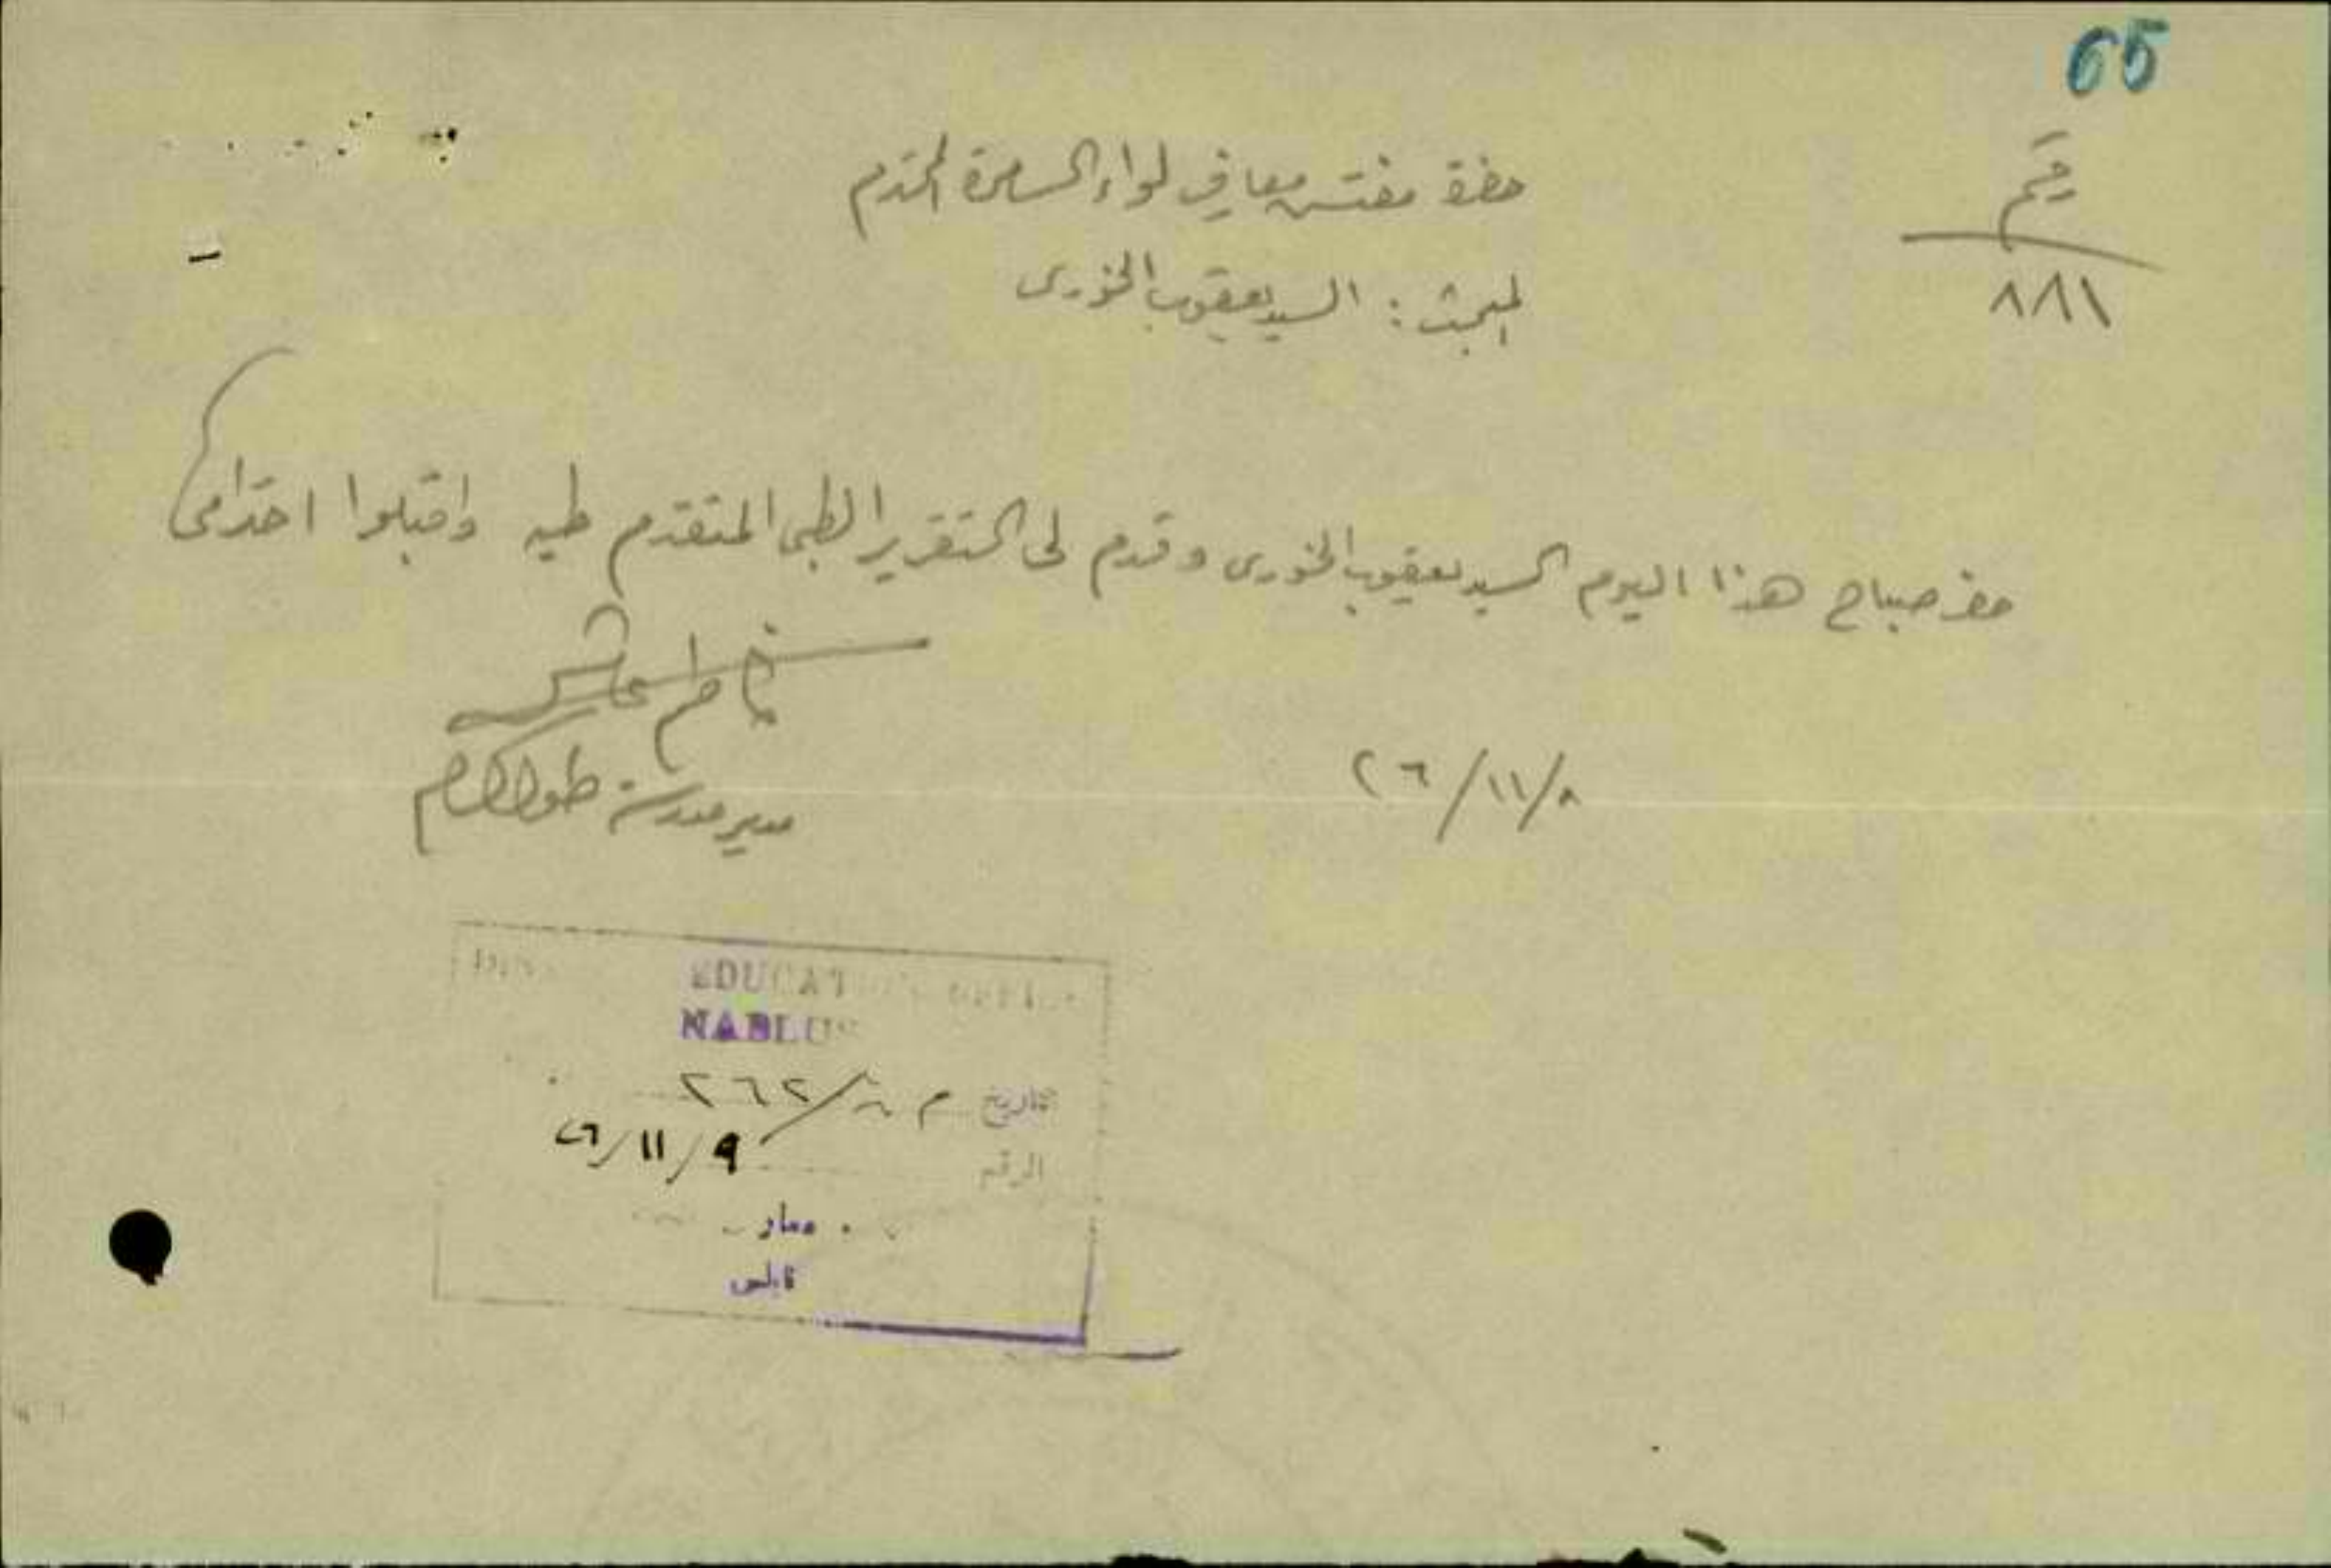 65
رقم
٨٨١
حضرة مفتش معارف لواء السامرة المحترم
المبحث : السيد يعقوب الخوري
حضر صباح هذا اليوم السيد يعقوب الخوري وقدم لي التقرير الطبي المتقدم طيه واقبلوا احترامي
٢٦/١١/٨
مدير مدرسة طولكرم
EDUCATION OFFICE
NABLUS
التاريخ م ٨/٢٦٢
الرقم ٢٦/١١/٩
نابلس